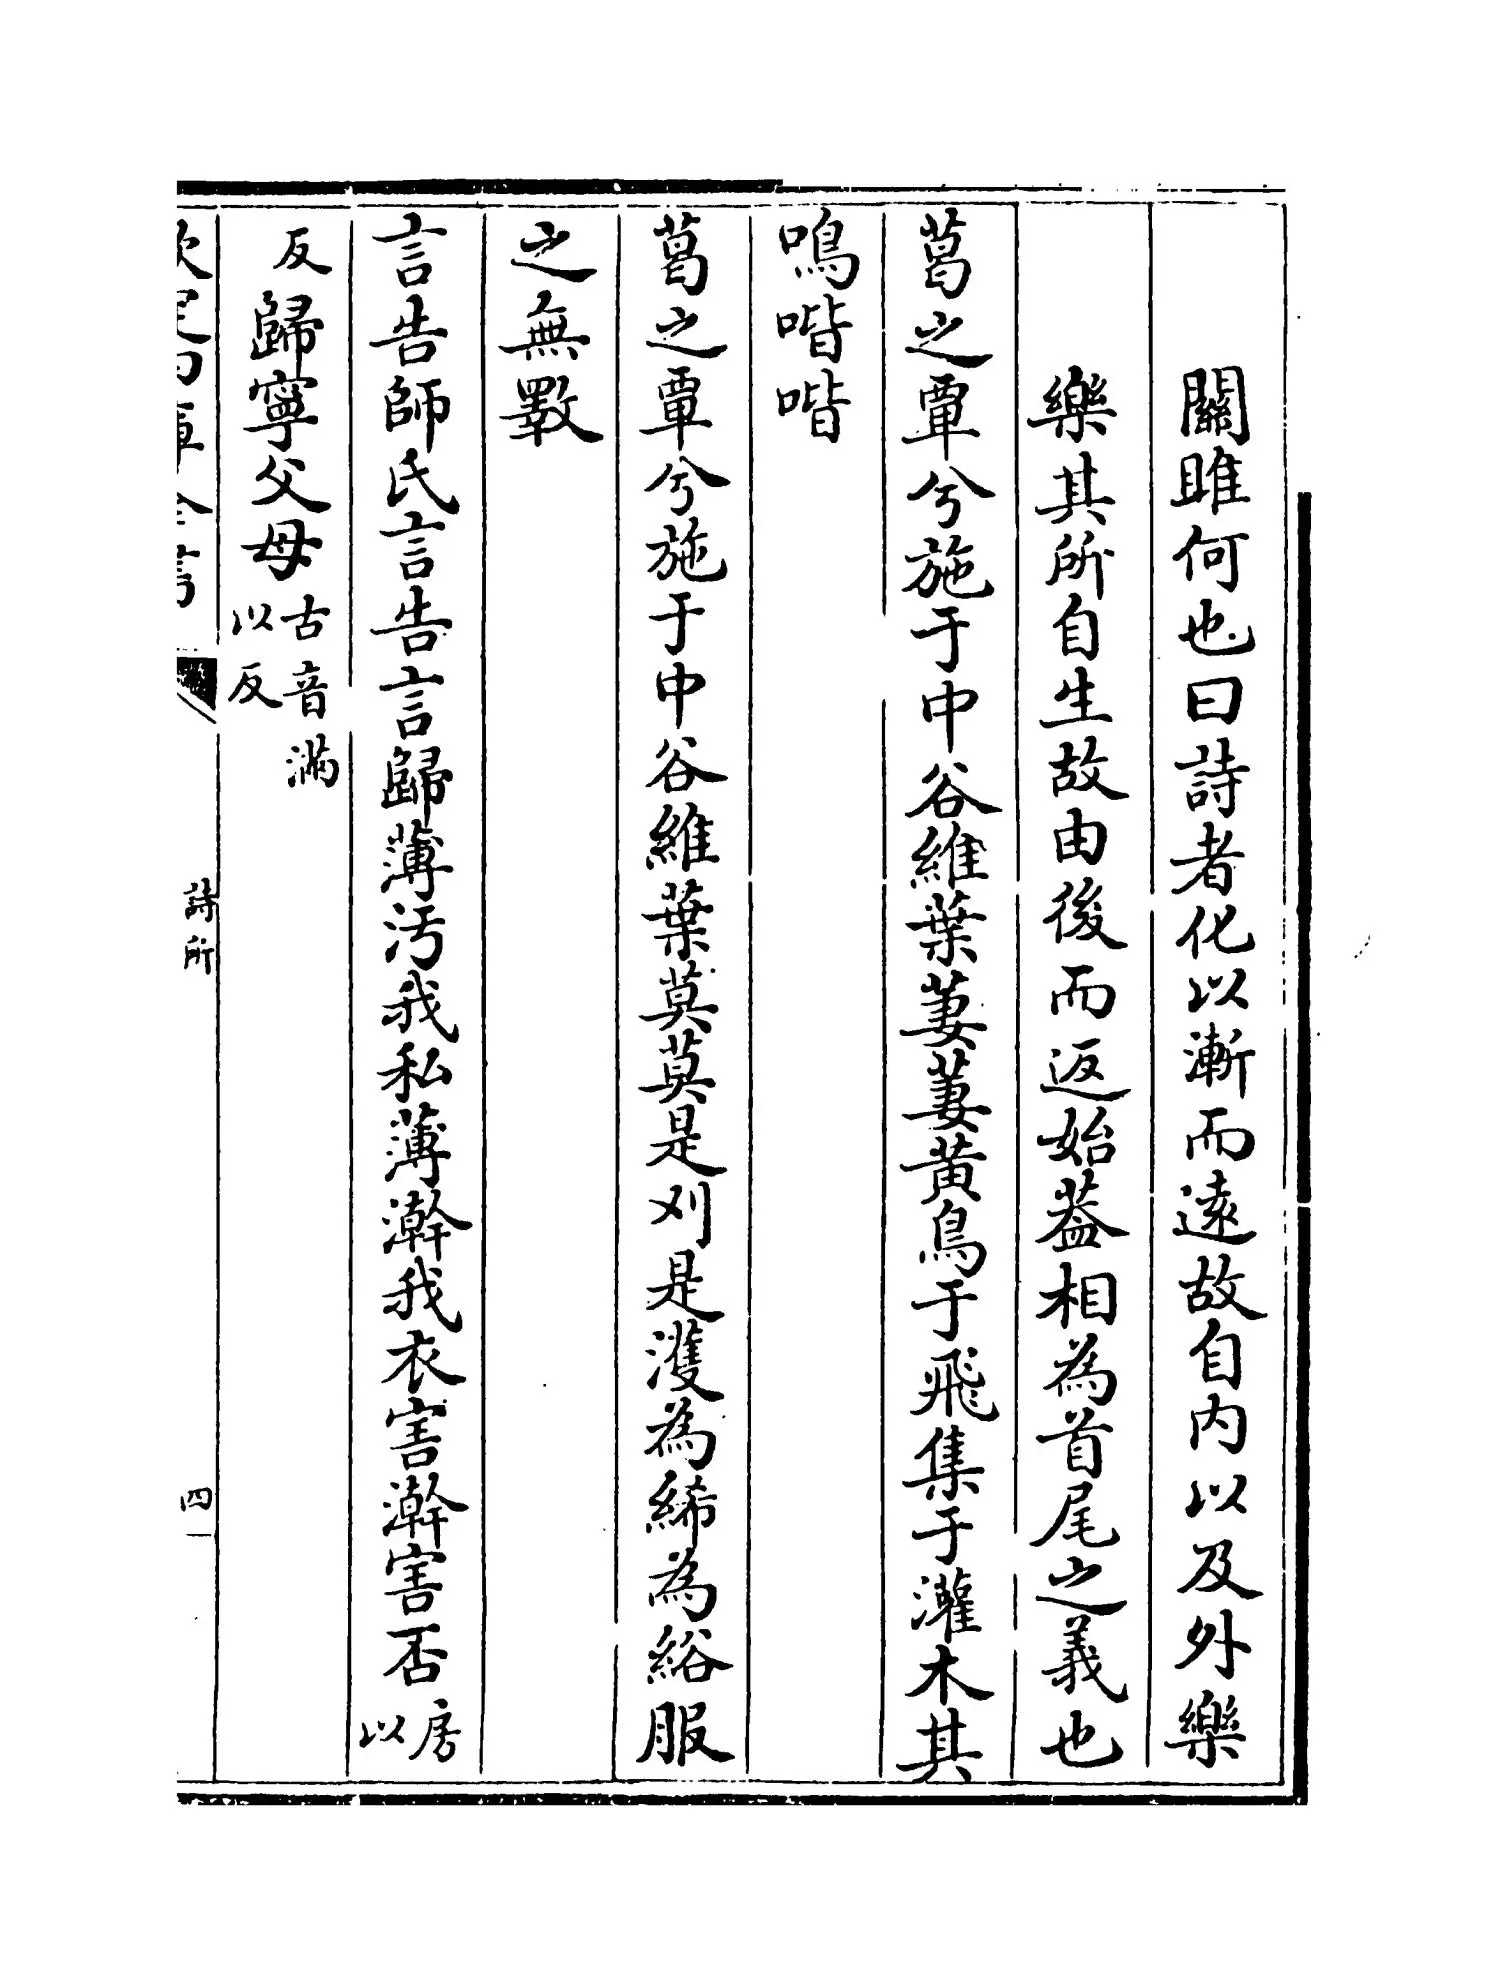 關雎何也曰詩者化以漸而遠故自内以及外樂
樂其所自生故由後而返始葢相為首尾之義也
葛之覃兮施于中谷維葉萋萋黃鳥于飛集于灌木其
鳴喈喈
葛之覃兮施于中谷維葉莫莫是刈是濩為絺為綌服
之無斁
言告師氏言告言歸薄汚我私薄澣我衣害澣害否房以
反歸寧父母古音滿以反
欽定四庫全書
詩所
四